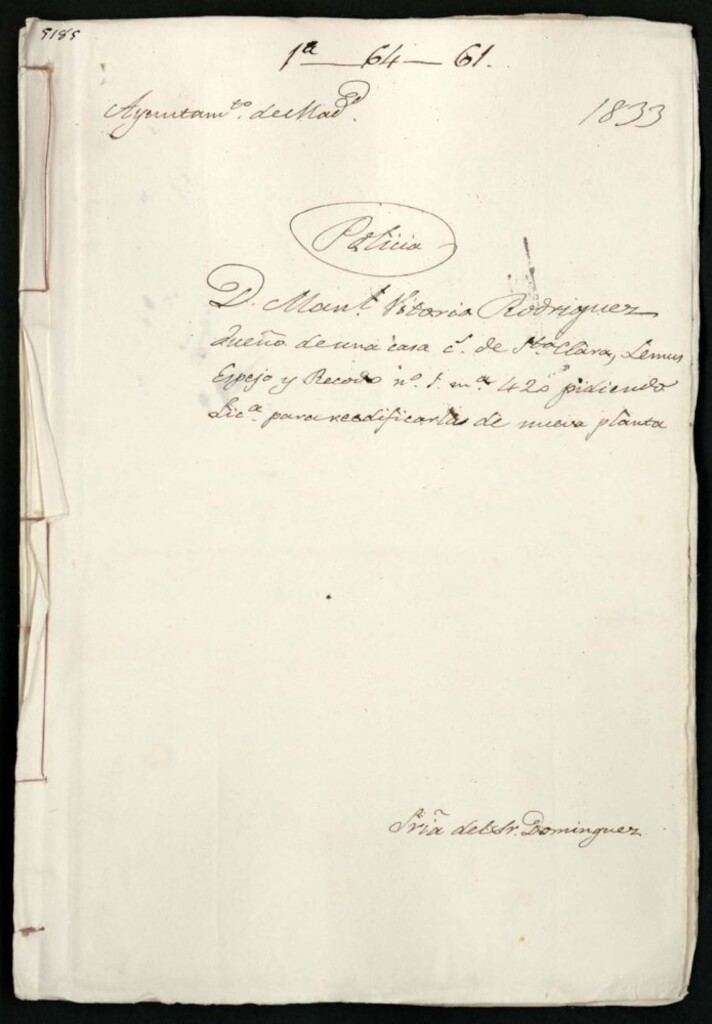 5185
1ª — 64 — 61.
Ayuntamto. de Madd.
1833
Policia
D. Manl. Vitorio Rodriguez
dueño de una casa c.e de Sta. Clara, Lemus
Espejo y Recodo nº. 1. mª. 420 pidiendo
Licª. para reedificarlas de nueva planta
Sriã del Sr. Dominguez